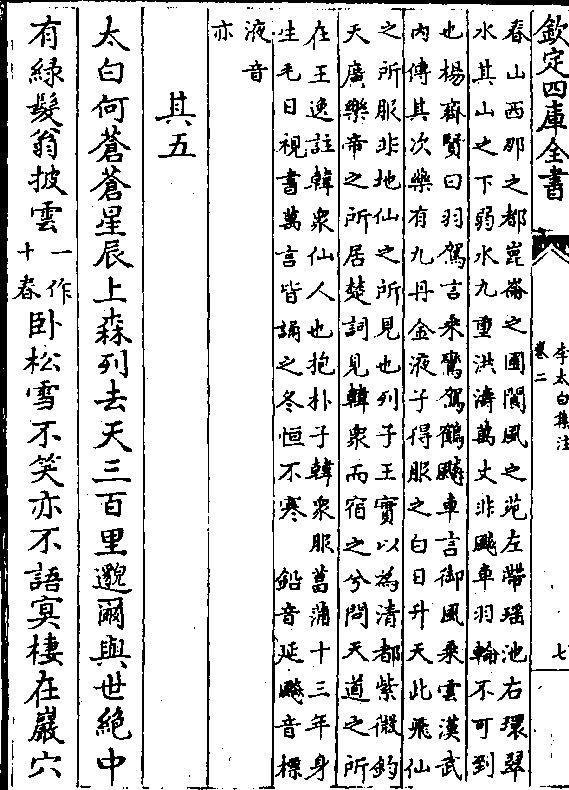 欽定四庫全書
李太白集注
卷二
七
春山西郡之都崑崙之圃閬風之苑左帶瑶池右環翠
水其山之下弱水九重洪濤萬丈非飈車羽輪不可到
也楊齊賢曰羽駕言乘鸞駕鶴飈車言御風乘雲漢武
内傳其次藥有九丹金液子得服之白日升天此飛仙
之所服非地仙之所見也列子王實以為清都紫微鈞
天廣樂帝之所居楚詞見韓衆而宿之兮問天道之所
在王逸註韓衆仙人也抱朴子韓衆服菖蒲十三年身
生毛日視書萬言皆誦之冬恒不寒 鉛音延飈音標
液音
亦
其五
太白何蒼蒼星辰上森列去天三百里邈爾與世絶中
有緑髮翁披雲一作十春卧松雪不笑亦不語冥棲在巖穴